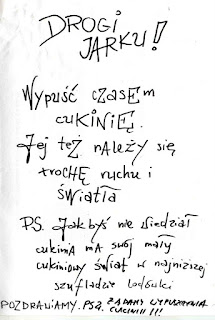 DROGI
JARKU!
Wypuść czasem
cukinię.
Jej też należy się
trochę ruchu i
światła
PS. Jakbyś nie wiedział
cukinia ma swój mały
cukiniowy świat w najniższej
szufladzie lodówki
POZDRAWIAMY. PS2. ŻĄDAMY WYPUSZCZENIA
CUKINII!!!